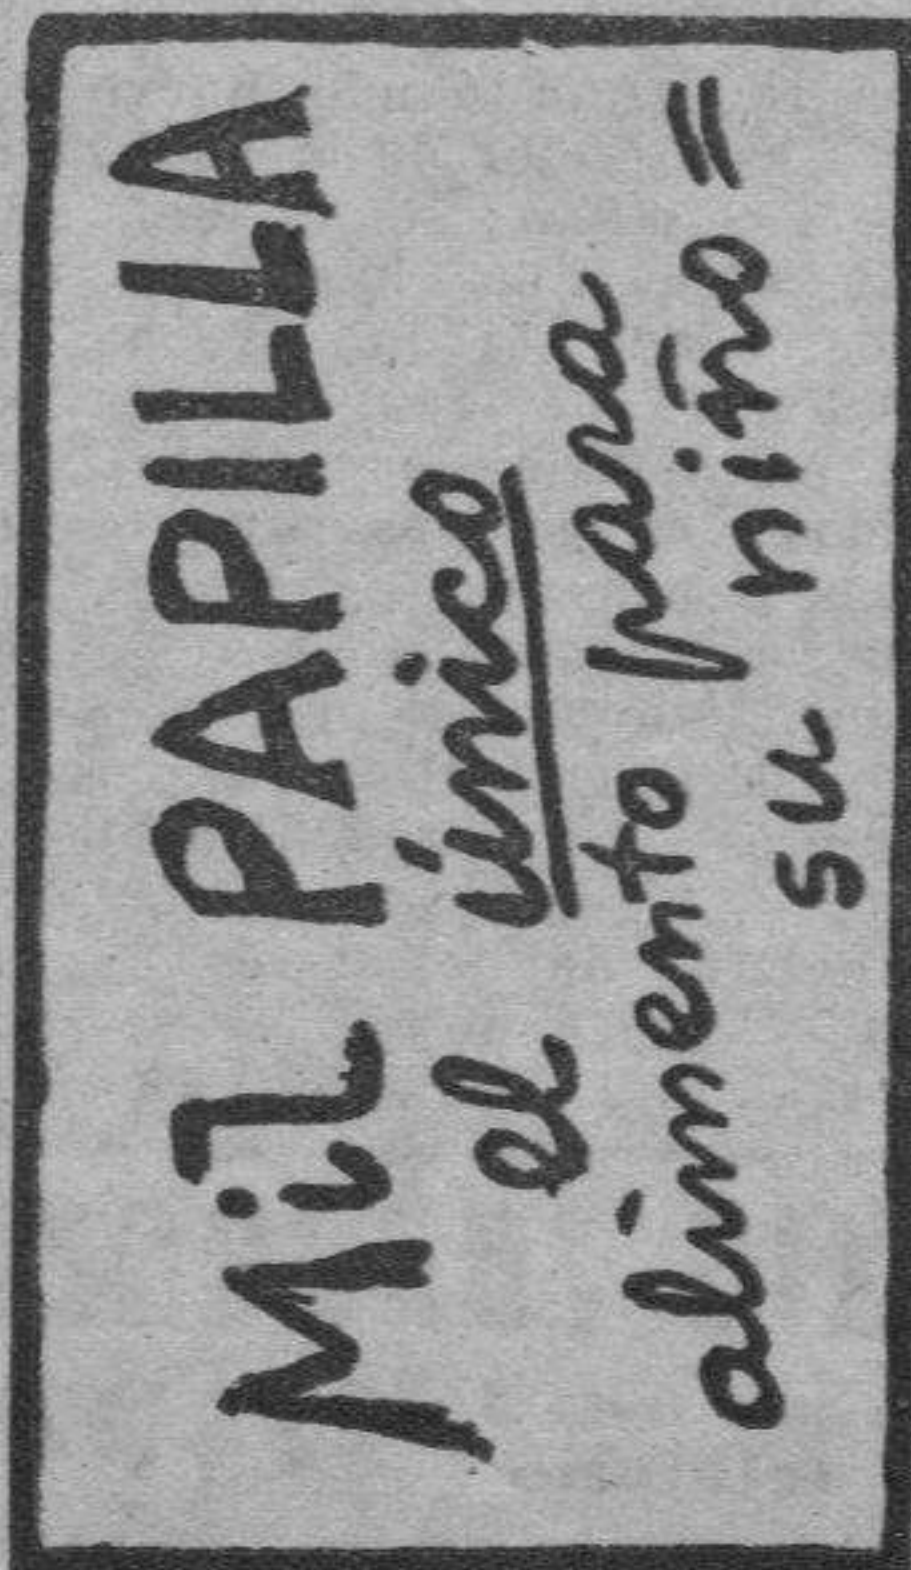 MiL PAPILLA
el único
alimento para
su niño =